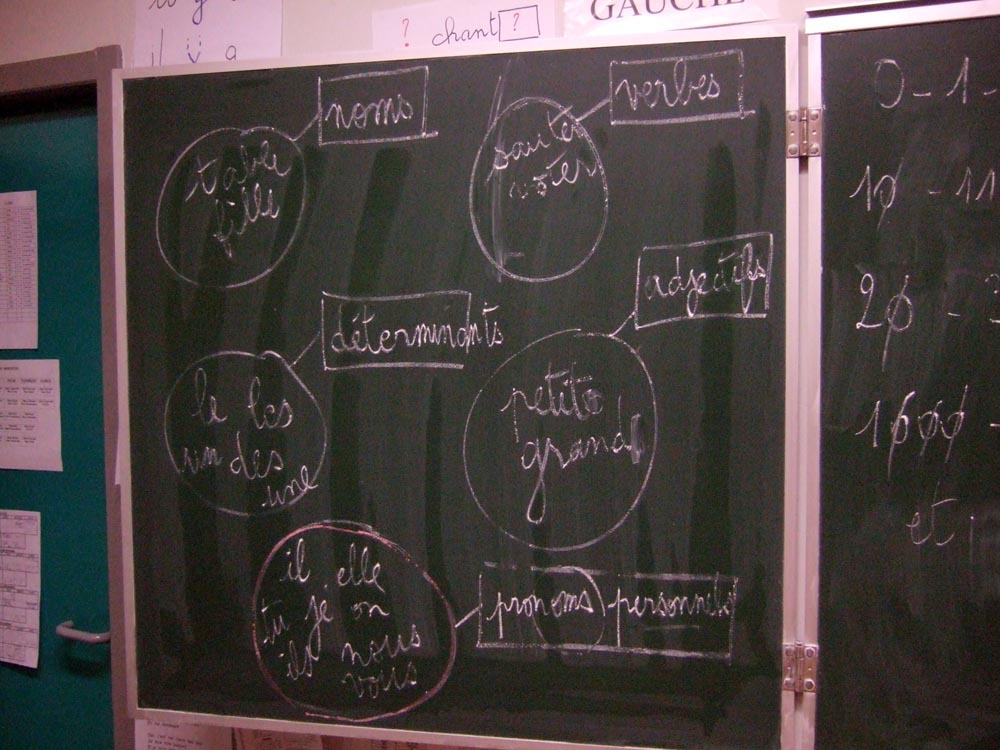 ? chant ?
GAUCHE
noms
table
fille
verbes
sauter
voter
déterminants
le les
un des
une
adjectifs
petite
grand
il elle
tu je on
ils nous
vous
pronoms personnels
0 - 1 -
10 - 11
20 -
1000 -
et